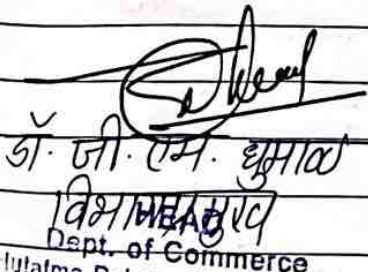 डॉ. जी. एम. धुमाळ
विभागप्रमुख
HEAD
Dept. of Commerce